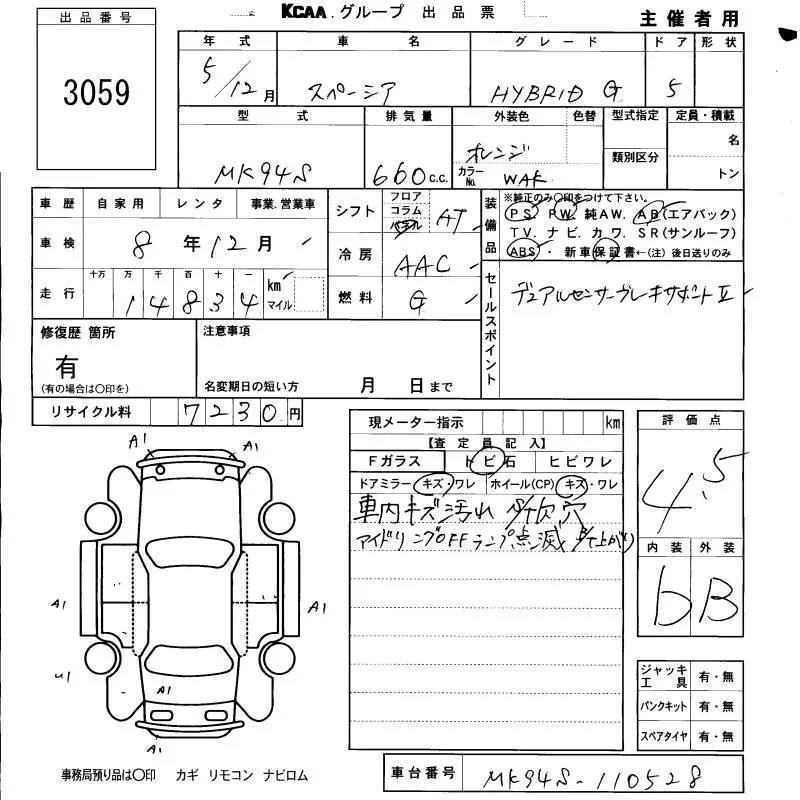 KCAA.グループ 出品票
主催者用
出品番号
3059
年式 車名 グレード ドア 形状
5/12月 スペーシア HYBRID G 5
型式 排気量 外装色 色替 型式指定 定員・積載
類別区分 名 トン
MK94S 660c.c. オレンジ カラーNo. WAK
車歴 自家用 レンタ 事業.営業車
車検 8年12月
走行 十万 万 千 百 十 一 km マイル
14834
シフト フロア コラム パネル AT
冷房 AAC
燃料 G
装備品 ※純正のみ○印をつけて下さい。
PS. PW. 純AW. AB(エアバック)
TV. ナビ. カワ. SR(サンルーフ)
ABS・新車保証書←(注)後日送りのみ
セールスポイント デュアルセンサーブレーキサポートⅡ
修復歴 箇所
有
(有の場合は○印を)
注意事項
名変期日の短い方 月 日まで
リサイクル料 7230円
現メーター指示 km
【査定員記入】
Fガラス トビ石 ヒビワレ
ドアミラー キズ・ワレ ホイール(CP) キズ・ワレ
車内キズ汚れ 欠 穴
アイドリングOFFランプ点滅
評価点
4.5
内装 外装
b B
A1 A1
A1 A1
U1 A1
A1
ジャッキ工具 有・無
パンクキット 有・無
スペアタイヤ 有・無
事務局預り品は○印 カギ リモコン ナビロム
車台番号 MK94S-110528